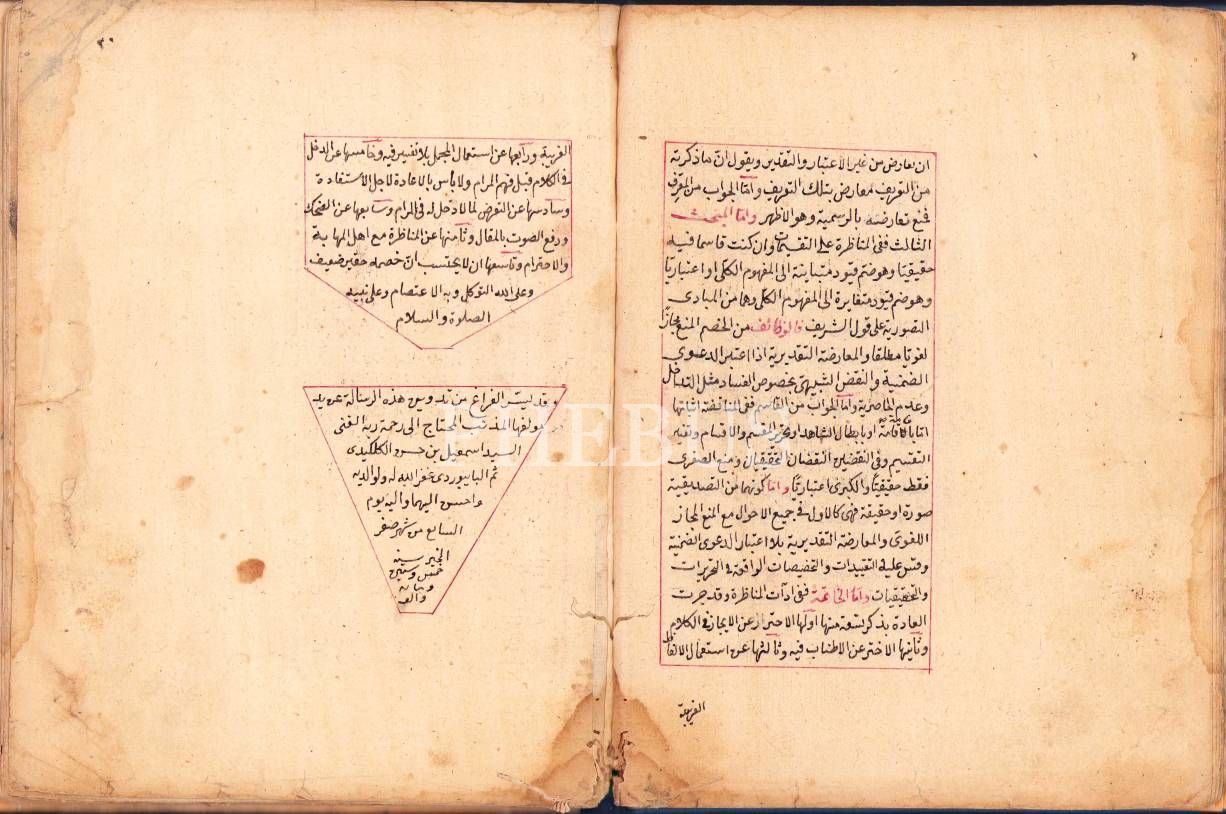 ان يعارض من غير الاعتبار والتقدير ويقول ان ما ذكرته
من التعريف لمعارض بتلك التعريف واما الجواب من المعرف
فمنع تعارضته بالرسمية وهو الاظهر واما المبحث
الثالث ففى المناظرة على التقسيمات وان كنت قاسما فيه
حقيقيا وهو ضم قيود متباينة الى المفهوم الكلى او اعتباريا
وهو ضم قيود متغايرة الى المفهوم الكلى وهما من المبادى
التصورية على قول الشريف فالوظائف من الخصم المنع مجازا
لغويا مطلقا والمعارضة التقديرية اذا اعتبر الدعوى
الضمنية والنقض الشبيهى بخصوص الفساد مثل التداخل
وعدم الحاصرية واما الجواب من القاسم ففى المناقضة اثباتها
اما باقامة او بابطال الشاهد او بتحرير المقسم والاقسام وتغيير
التقسيم وفى النقضين النقضان الحقيقيان ومنع الصغرى
فقط حقيقيا والكبرى اعتباريا واما كونهما من التصديقية
صورة او حقيقة فهى كالاول فى جميع الاحوال مع المنع المجاز
اللغوى والمعارضة التقديرية بلا اعتبار الدعوى الضمنية
وقس عليه التقييدات والتخصيصات الواقعة فى التحريرات
والتحقيقيات واما الخاتمة ففى اداٰت المناظرة وقد جرت
العادة بذكر تسعة منها اولها الاحتراز عن الايجاز فى الكلام
وثانيها الاختر عن الاطناب فيه وثالثها عن استعمال الالفاظ
الغريبة
الغريبة ورابعها عن استعمال المجمل بلا تفسير فيه وخامسها عن الدخل
فى الكلام قبل فهم المرام ولا باس بالاعادة لاجل الاستفادة
وسادسها عن التعرض لما لا دخل له فى المرام وسابعها عن الضحك
ورفع الصوت بالمقال وثامنها عن المناظرة مع اهل المهابة
والاحترام وتاسعها ان لا يحتسب ان خصمه حقير ضعيف
وعلى الله التوكل وبه الاعتصام وعلى نبيه
الصلوة والسلام
وقد تيسر الفراغ من تدوين هذه الرسالة عن يد
مولفها المذنب المحتاج الى رحمة ربه الغنى
السيد اسمعيل بن حسن الكلكيدى
ثم البايبوردى غفر الله له ولوالديه
واحسن اليهما واليه يوم
السابع من شهر صفر
الخير سنة
خمس وستين
ومائة
والف
PHEBUS